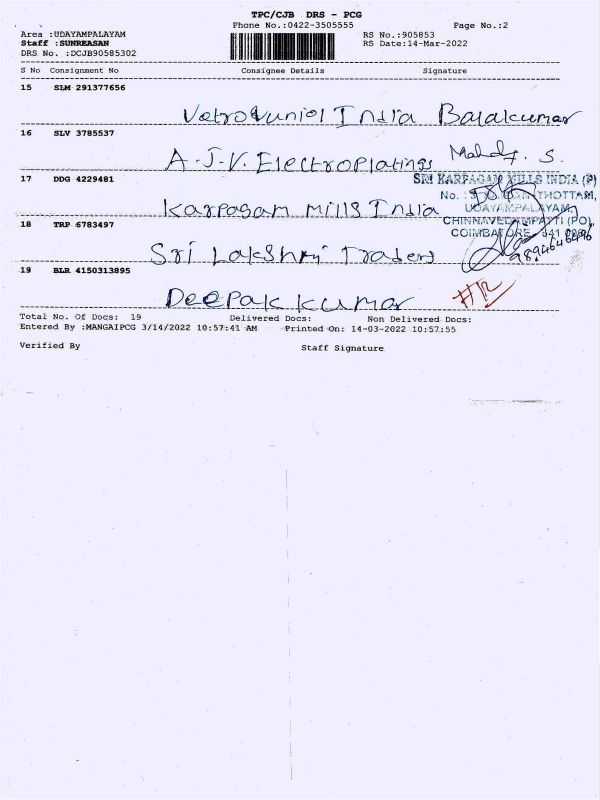 TPC/CJB DRS - PCG
Phone No.:0422-3505555 Page No.:2
Area :UDAYAMPALAYAM RS No.:905853
Staff :SUNREASAN RS Date:14-Mar-2022
DRS No. :DCJB90585302
S No Consignment No Consignee Details Signature
15 SLM 291377656
Vetrovuniol India Balakumar
16 SLV 3785537
A.J.V. Electroplatings S.
17 DDG 4229481 SRI KARPAGAM MILLS INDIA (P)
No. THOTTAM,
Karpagam Mills India UDAYAMPALAYAM,
18 TRP 6783497 CHINNAVEDAMPATTI (PO),
COIMBATORE
Sri Lakshmi Traders
19 BLR 4150313895
Deepak kumar
Total No. Of Docs: 19 Delivered Docs: Non Delivered Docs:
Entered By :MANGAIPCG 3/14/2022 10:57:41 AM Printed On: 14-03-2022 10:57:55
Verified By Staff Signature